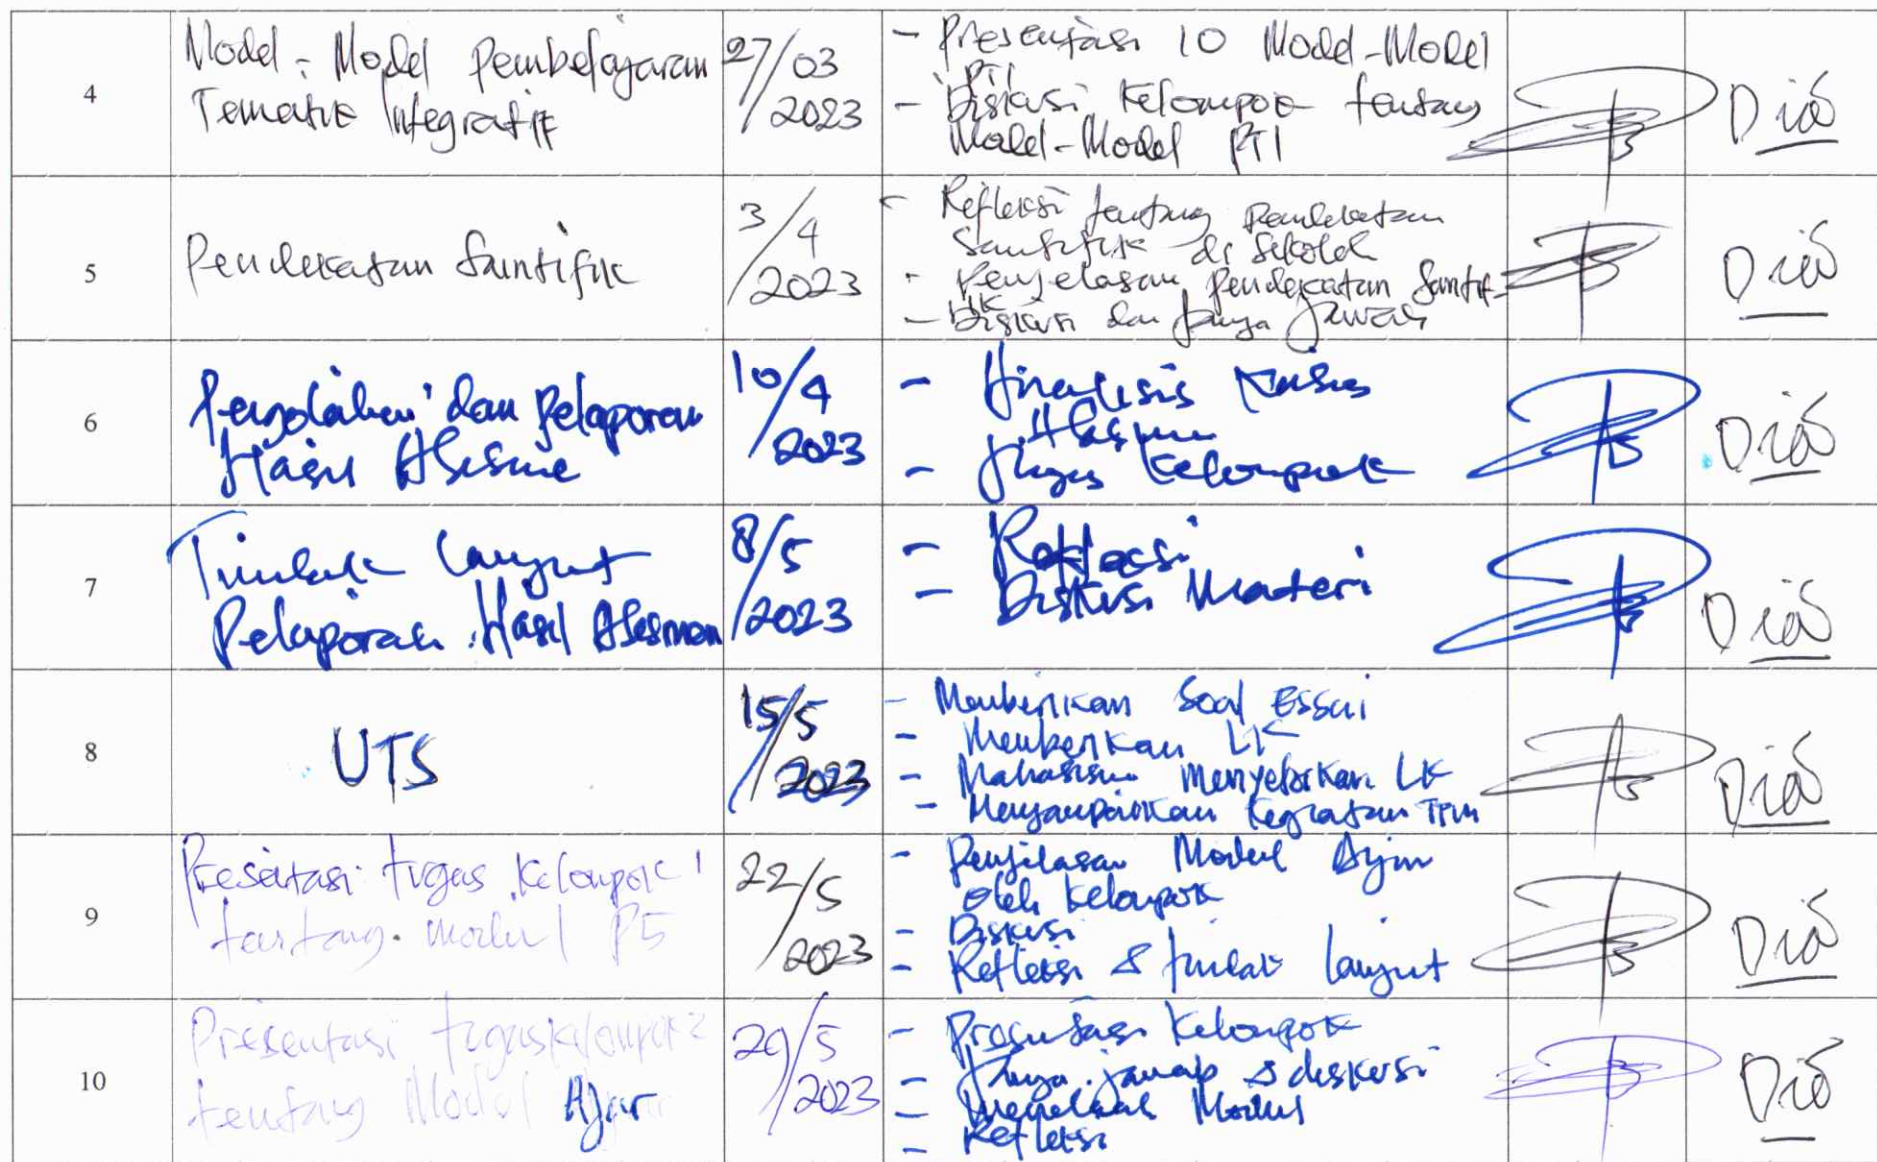 4
Model-Model Pembelajaran
Tematik Integratif
27/03
2023
- Presentasi 10 Model-Model
PTI
- Diskusi Kelompok tentang
Model-Model PTI
5
Pendekatan Saintifik
3/4
2023
- Refleksi tentang Pendekatan
Saintifik di Sekolah
- Penjelasan Pendekatan Santif-
ik
- Diskusi dan Tanya Jawab
6
Pengolahan dan Pelaporan
Hasil
10/4
2023
- Analisis Kasus
- Tugas Kelompok
7
Tindak Lanjut
Pelaporan Hasil Asesmen
8/5
2023
- Refleksi
- Diskusi Materi
8
UTS
15/5
2023
- Memberikan Soal Essai
- Memberikan LK
- Mahasiswa Menyetorkan LK
- Menyampaikan Kegiatan
9
Presentasi tugas Kelompok 1
tentang Modul P5
22/5
2023
- Penjelasan Modul
oleh Kelompok
- Diskusi
- Refleksi & tindak lanjut
10
Presentasi tugas Kelompok 2
tentang Modul Ajar
29/5
2023
- Presentasi Kelompok
- Tanya jawab & diskusi
- Modul
- Refleksi